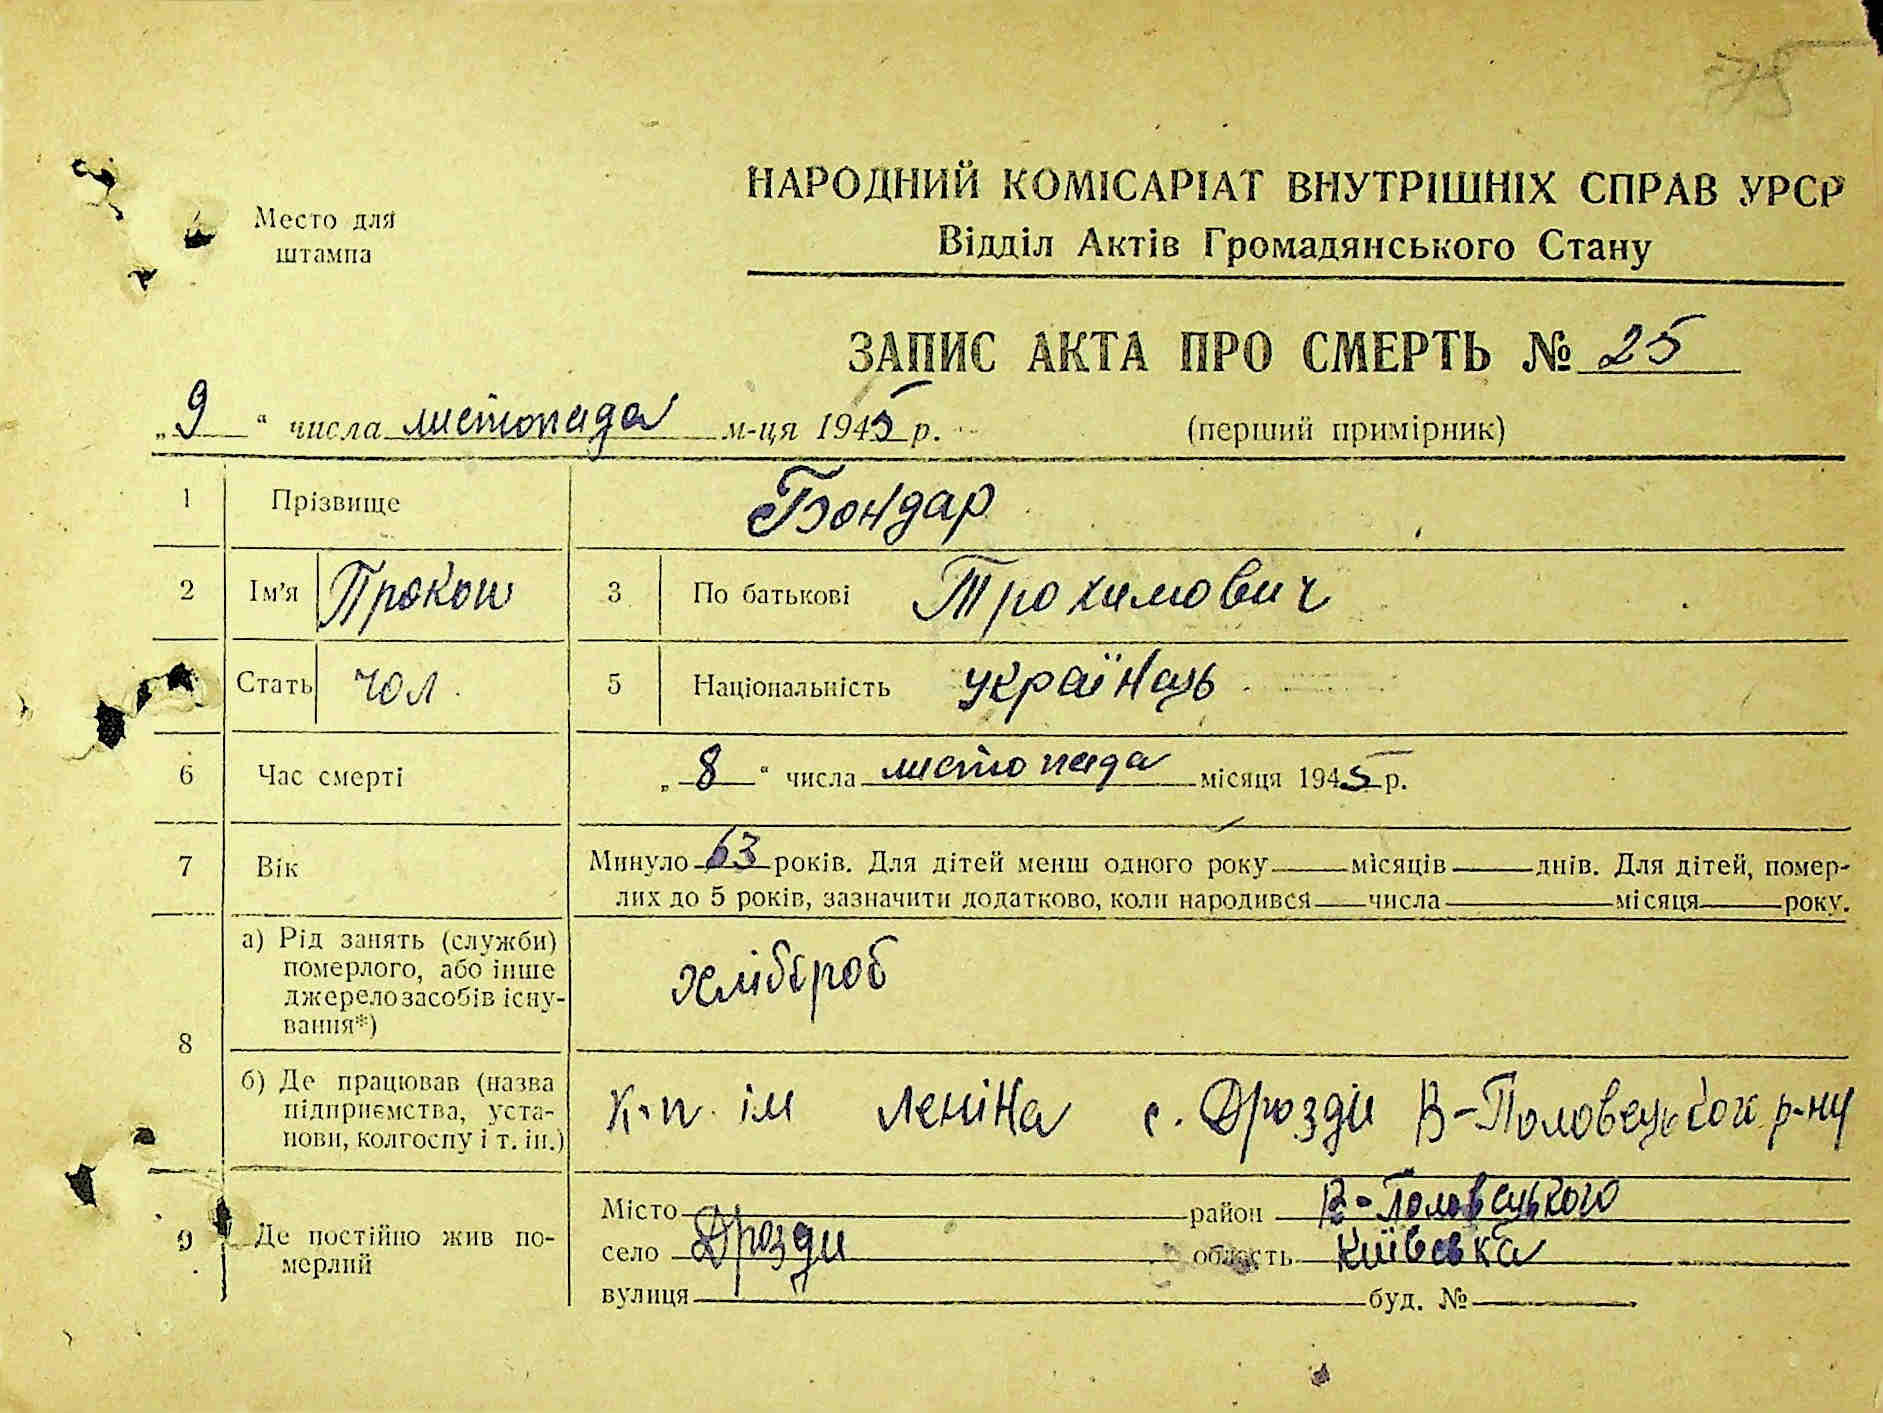 775
НАРОДНИЙ КОМІСАРІАТ ВНУТРІШНІХ СПРАВ УРСР
Место для
штампа
Відділ Актів Громадянського Стану
ЗАПИС АКТА ПРО СМЕРТЬ № 25
„9“ числа листопада м-ця 1945 р. (перший примірник)
1 Прізвище Бондар
2 Ім’я Прокоп 3 По батькові Трохимович
Стать чол. 5 Національність українець
6 Час смерті „8“ числа листопада місяця 1945 р.
7 Вік Минуло 63 років. Для дітей менш одного року місяців днів. Для дітей, помер-
лих до 5 років, зазначити додатково, коли народився числа місяця року.
8 а) Рід занять (служби)
померлого, або інше
джерело засобів існу-
вання*) хлібороб
б) Де працював (назва
підприємства, уста-
нови, колгоспу і т. ін.) К-п. ім Леніна с. Дрозди В-Половецького р-ну
9 Де постійно жив по-
мерлий
Місто район В-Половецького
село Дрозди область Київська
вулиця буд. №